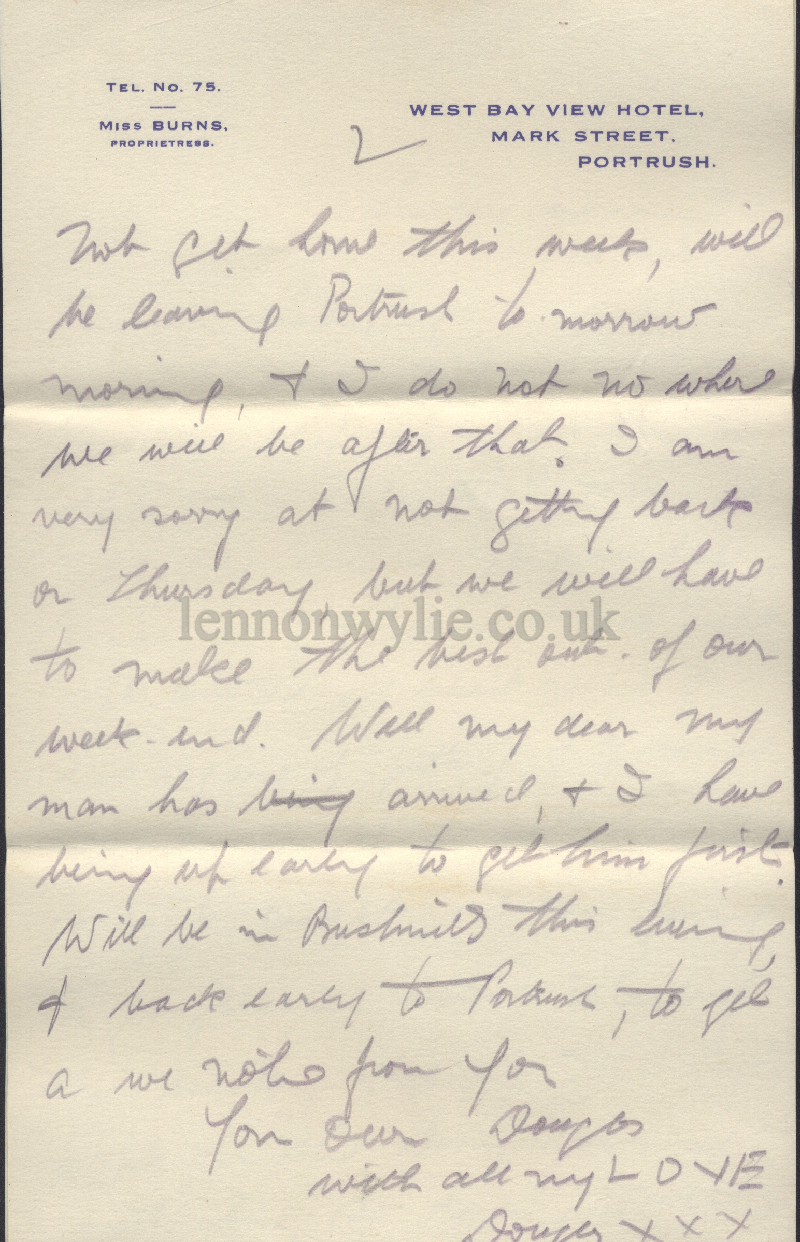 TEL. No. 75.
MISS BURNS,
PROPRIETRESS.
WEST BAY VIEW HOTEL,
MARK STREET.
PORTRUSH.
2
Not get home this week, will
be leaving Portrush to-morrow
morning, & I do not no where
we will be after that. I am
very sorry at not getting back
on Thursday, but we will have
to make the best out of our
week-end. Well my dear my
man has being arrived, & I have
being up early to get him first.
Will be in Bushmills this evening,
& back early to Portrush, to get
a we note from you
Your Dear Douglas
with all my LOVE
Douglas x x x
lennonwylie.co.uk